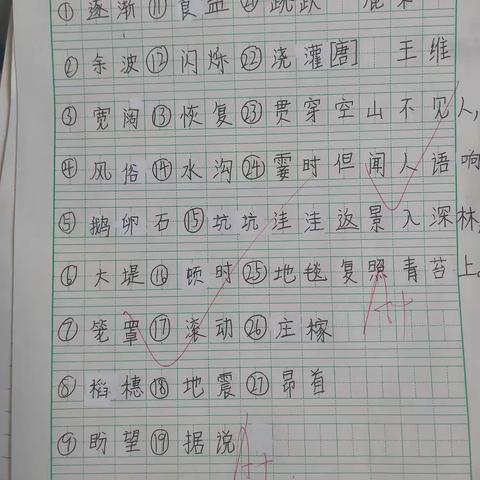 ①逐渐⑪食盐㉑跳跃 鹿柴
②余波⑫闪烁㉒浇灌[唐] 王维
③宽阔⑬恢复㉓贯穿空山不见人,
④风俗⑭水沟㉔霎时但闻人语响
⑤鹅卵石⑮坑坑洼洼返景入深林,
⑥大堤⑯顿时㉕地毯复照青苔上。
⑦笼罩⑰滚动㉖庄稼
⑧稻穗⑱地震㉗昂首
⑨盼望⑲据说
A++
A++